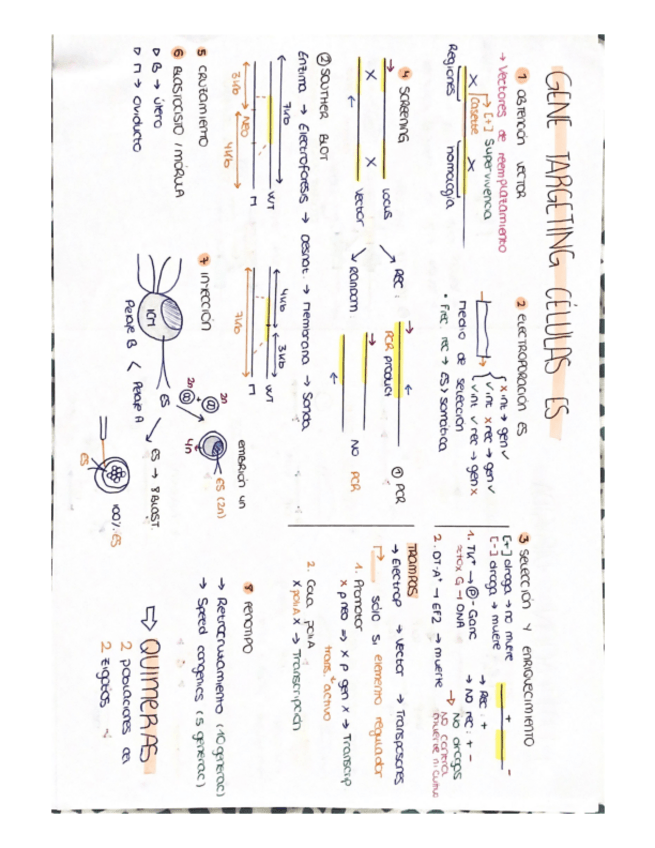 GENE TARGETING CÉLULAS ES
1 OBTENCIÓN VECTOR
→ Vectores de reemplazamiento
→ [+] Supervivencia
X Casette X
Regiones homología
2 ELECTROPORACIÓN ES
x int → gen ✓
✓ int x rec → gen ✓
✓ int ✓ rec → gen x
medio de selección
• Frec rec → ES > somática
3 SELECCIÓN Y ENRIQUECIMIENTO
[+] droga → no muere
[-] droga → muere
+ -
1. TK+ → P - Ganc
→ Rec : +
→ NO rec : + -
2. DT-A+ → EF2 → muerte
→ No drogas
4 SCREENING
X X
LOCUS
Vector
REC :
RANDOM :
PCR product
① PCR
NO PCR
TRAMPAS
→ Electrop → vector → Transposones
solo si elemento regulador
1. Promotor
x p neo ⇒ x p gen x → Transcrip
trans. activo
2. Cola poliA
x poliA x → Transcripción
② SOUTHER BLOT
Enzima → Electroforesis → Desnat. → Membrana → Sonda
7Kb
WT
NEO
M
3Kb 4Kb
4Kb 3Kb
WT
M
7Kb
5 CRUZAMIENTO
6 BLASTOCISTO / MÓRULA
▷ B → útero
▷ M → oviducto
7 INYECCIÓN
ICM
ES
Pelaje B < Pelaje A
2n 2n
4n
EMBRIÓN 4n
ES (2n)
ES → 8 BLAST.
ES
100% ES
8 FENOTIPO
→ Retrocruzamiento (10 generac)
→ Speed congenics (5 generac)
⇨ QUIMERAS
2 poblaciones cel
2 zigotos